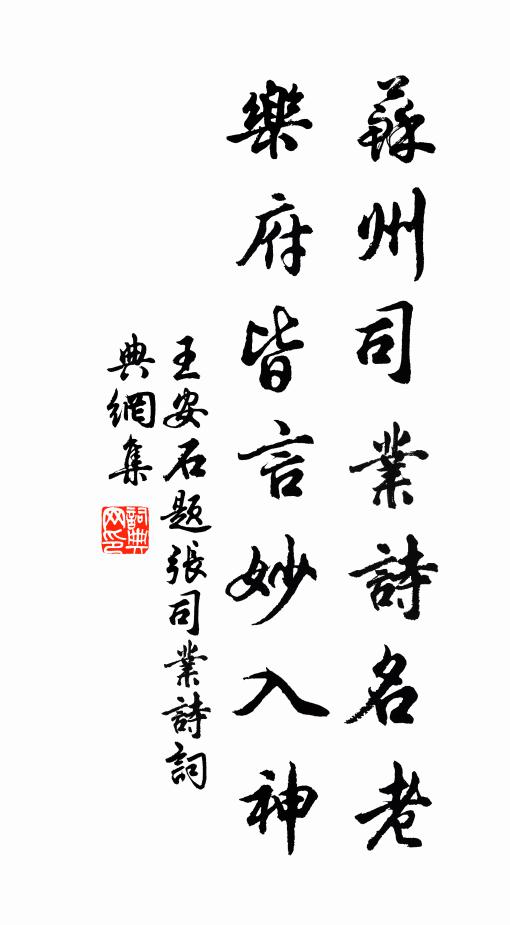 蘇州司業詩名老
樂府皆言妙入神
王安石題張司業詩詞
典網集
詞典
网印